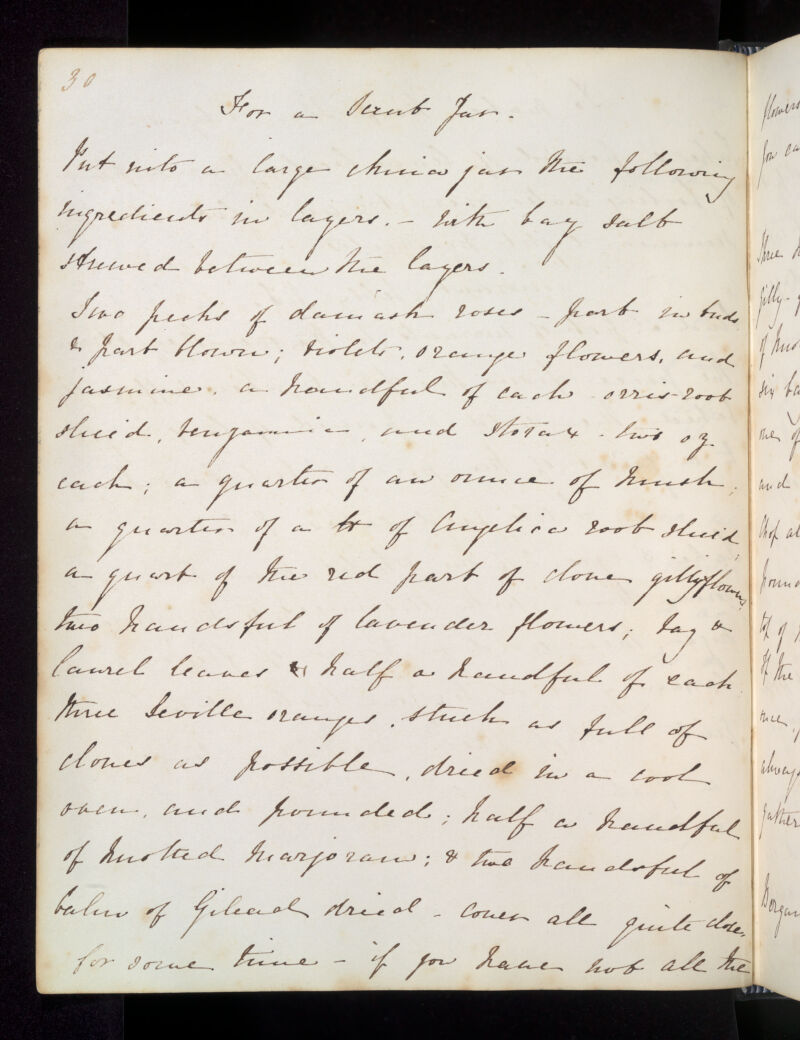 30
For a Scent Jar.
Put into a large china jar the following
ingredients in layers. – with bay salt
strewed between the layers.
Two pecks of damask roses – part in buds
& part blown; violets, orange flowers, and
jasmine. a handful of each orris-root
sliced, benjamin, and storax – two oz
each; a quarter of an ounce of Musk;
a quarter of a lb of Angelica root sliced
a quart of the red part of clove gillyflowers
two handsful of lavender flowers; bay &
laurel leaves half a handful of each
three Seville oranges, stuck as full of
cloves as possible, dried in a cool
oven, and pounded; half a handful
of knotted Marjoram; & two handsful of
balm of Gilead dried – cover all quite close
for some time – if you have not all the
flowers
gilly-
six
and
always
gather